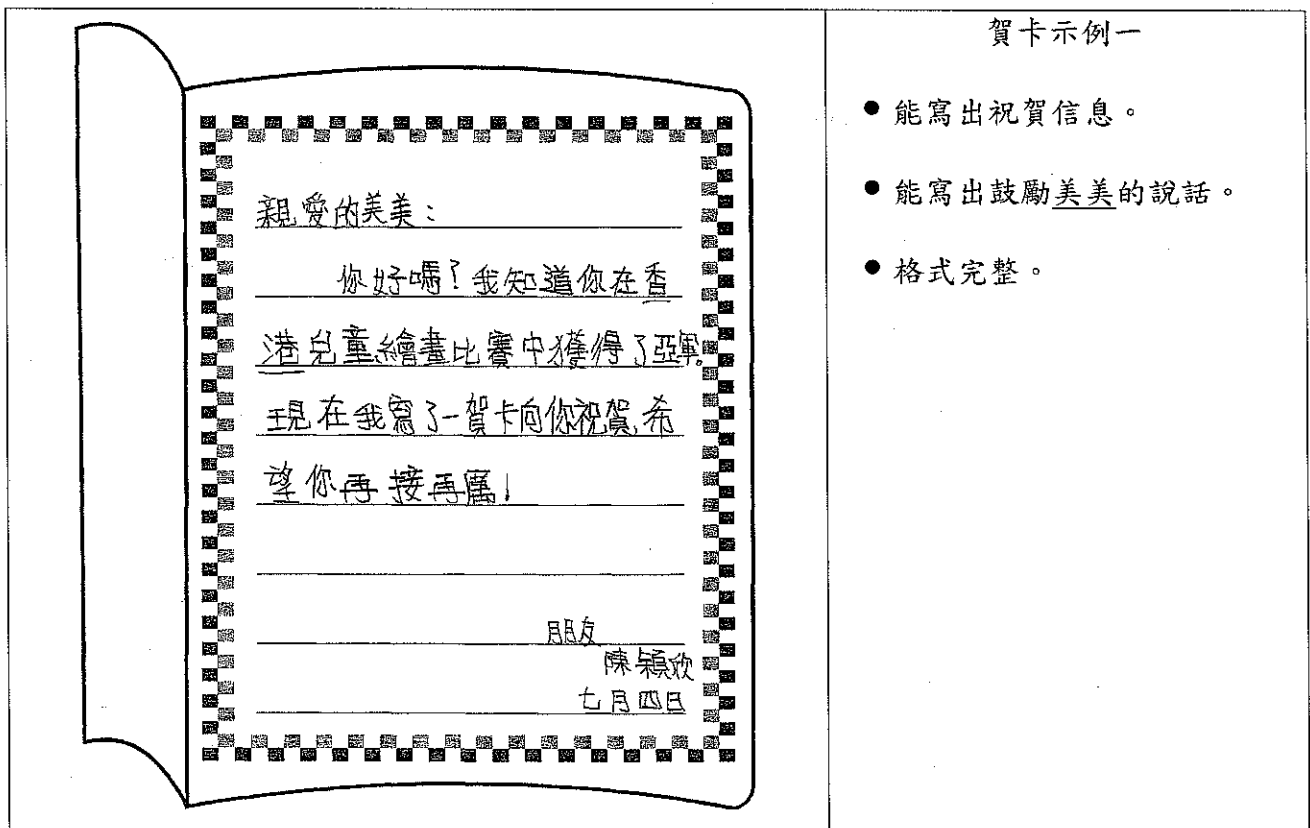 親愛的美美：
你好嗎？我知道你在香
港兒童繪畫比賽中獲得了亞軍。
現在我寫了一賀卡向你祝賀，希
望你再接再厲！
朋友
陳穎欣
七月四日
賀卡示例一
● 能寫出祝賀信息。
● 能寫出鼓勵美美的說話。
● 格式完整。